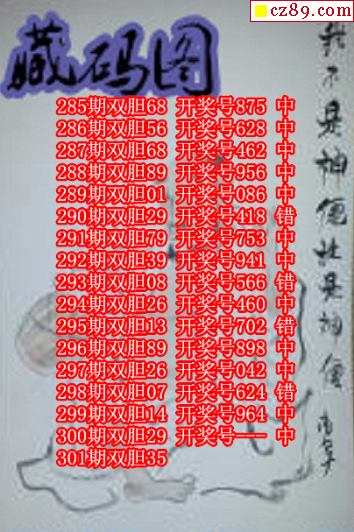 cz89.com
藏码图
285期双胆68 开奖号875 中
286期双胆56 开奖号628 中
287期双胆68 开奖号462 中
288期双胆89 开奖号956 中
289期双胆01 开奖号086 中
290期双胆29 开奖号418 错
291期双胆79 开奖号753 中
292期双胆39 开奖号941 中
293期双胆08 开奖号566 错
294期双胆26 开奖号460 中
295期双胆13 开奖号702 错
296期双胆89 开奖号898 中
297期双胆26 开奖号042 中
298期双胆07 开奖号624 错
299期双胆14 开奖号964 中
300期双胆29 开奖号--- 中
301期双胆35
我不是神僊
是神僊